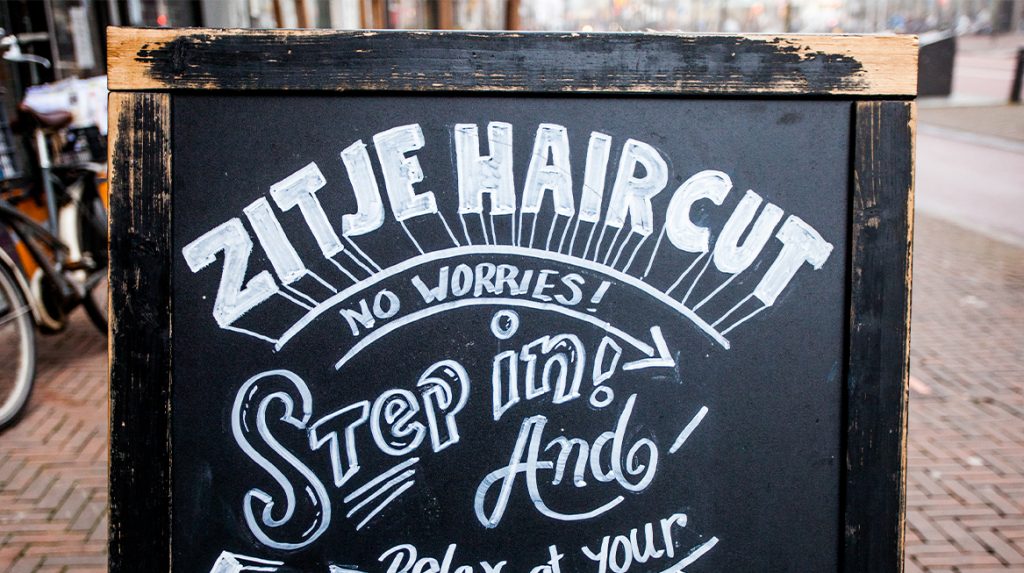 ZITJE HAIRCUT
NO WORRIES!
STEP in!
And
Relax at your